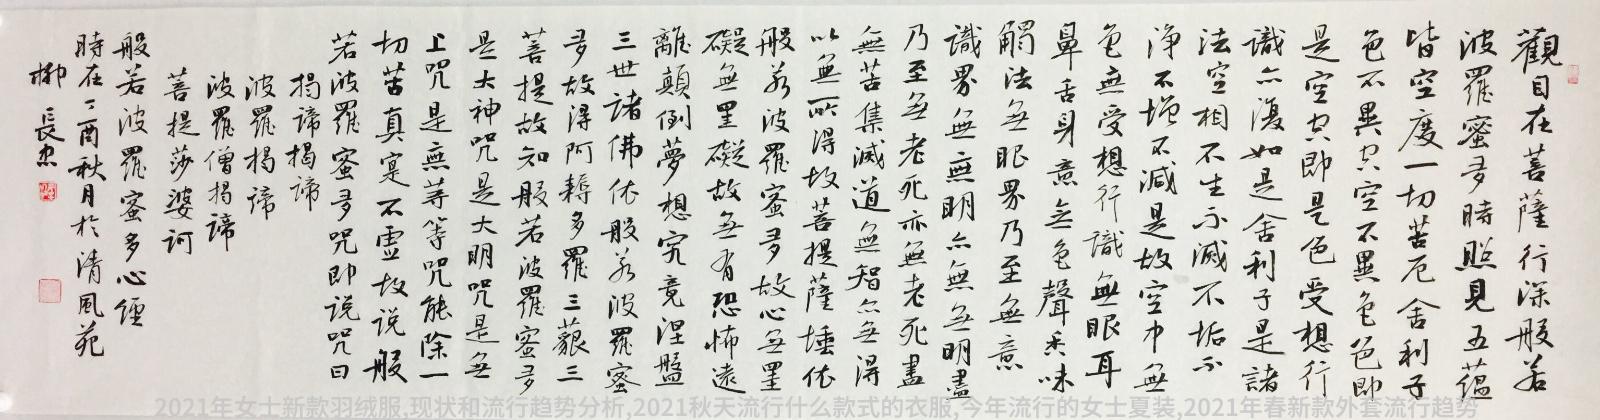 觀自在菩薩行深般若
波羅蜜多時照見五蘊
皆空度一切苦厄舍利子
色不異空空不異色色即
是空空即是色受想行
識亦復如是舍利子是諸
法空相不生不滅不垢不
淨不增不減是故空中無
色無受想行識無眼耳
鼻舌身意無色聲香味
觸法無眼界乃至無意
識界無無明亦無無明盡
乃至無老死亦無老死盡
無苦集滅道無智亦無得
以無所得故菩提薩埵依
般若波羅蜜多故心無罣
礙無罣礙故無有恐怖遠
離顛倒夢想究竟涅盤
三世諸佛依般若波羅蜜
多故得阿耨多羅三藐三
菩提故知般若波羅蜜多
是大神咒是大明咒是無
上咒是無等等咒能除一
切苦真实不虛故说般
若波羅蜜多咒即说咒曰
揭諦揭諦
波羅揭諦
波羅僧揭諦
菩提莎婆訶
般若波羅蜜多心經
時在丁酉秋月於清風苑
柳長忠
2021年女士新款羽绒服,现状和流行趋势分析,2021秋天流行什么款式的衣服,今年流行的女士夏装,2021年春新款外套流行趋势